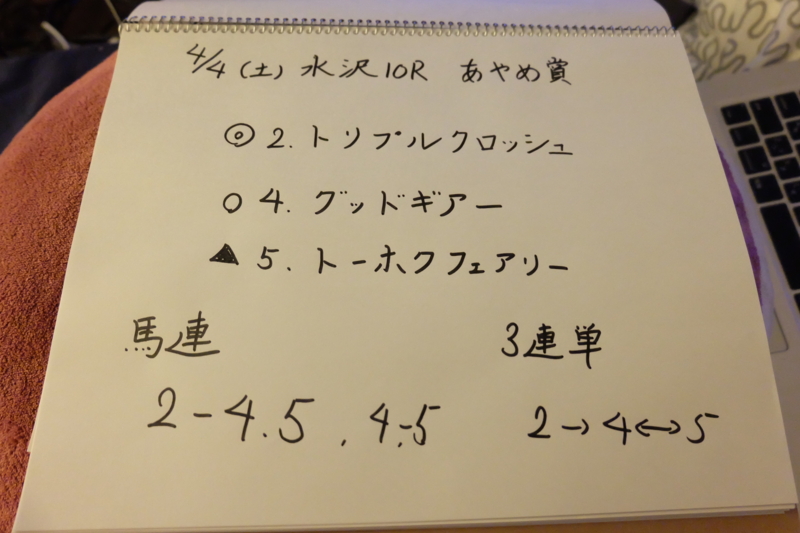 4/4(土) 水沢10R あやめ賞
◎ 2. トリプルクロッシュ
○ 4. グッドギアー
▲ 5. トーホクフェアリー
馬連 3連単
2-4.5 , 4-5 2→4↔5